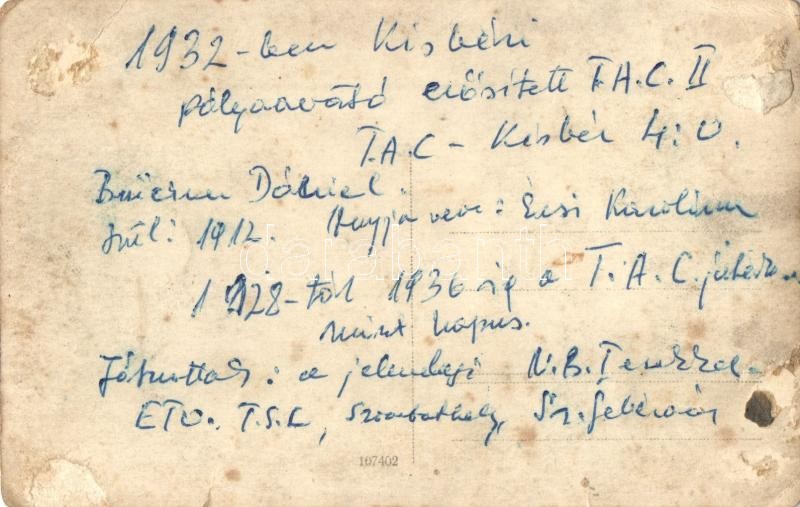 1932-ben Kisbéri
pályaavató erősített T.A.C. II
T.A.C - Kisbér 4:0.
Dániel.
szül: 1912. Anyja neve: Érsi Karolina
1928-tól 1936 ig a T.A.C.
mint kapus.
Játszottak: a jelenlegi N.B.
ETO. T.S.C, Szombathely, Sz.fehérvár
darabanth
107402